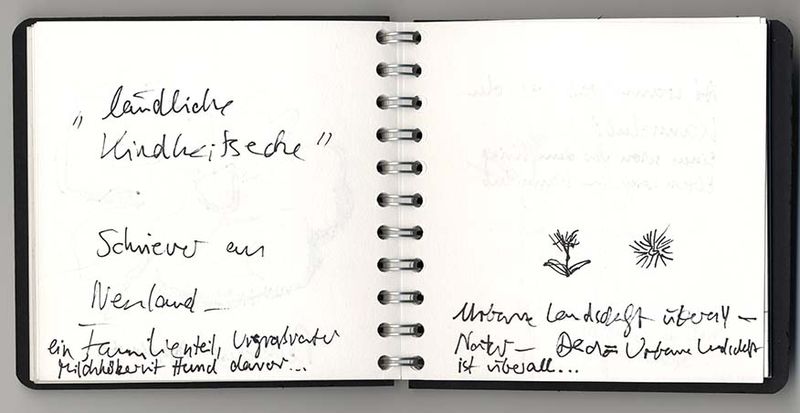 „ländliche
Kindheitsecke"
Schriever aus
Neuland –
ein Familienteil, Urgroßvater
Milchhöker mit Hund davor...
Urbane Landschaft überall –
Natur – Urbane Landschaft
ist überall...